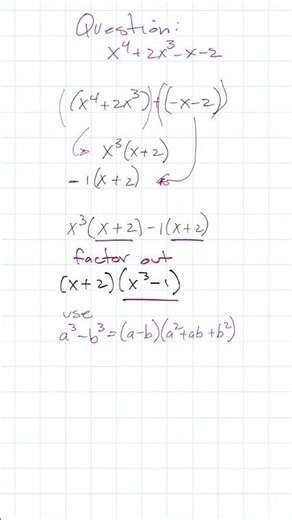 Question:
x⁴+2x³-x-2
((x⁴+2x³)+(-x-2))
x³(x+2)
-1(x+2)
x³(x+2)-1(x+2)
factor out
(x+2)(x³-1)
use
a³-b³=(a-b)(a²+ab+b²)